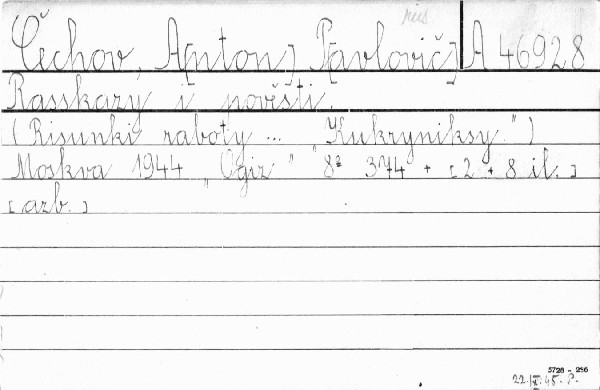 rus
Čechov, A[nton] P[avlovič] A 46928
Rasskazy i pověsti.
(Risunki raboty ... "Kukryniksy")
Moskva 1944 "Ogiz" 8° 374 + [2 + 8 il.]
[azb.]
5728 - 256
22.IX.45. P.